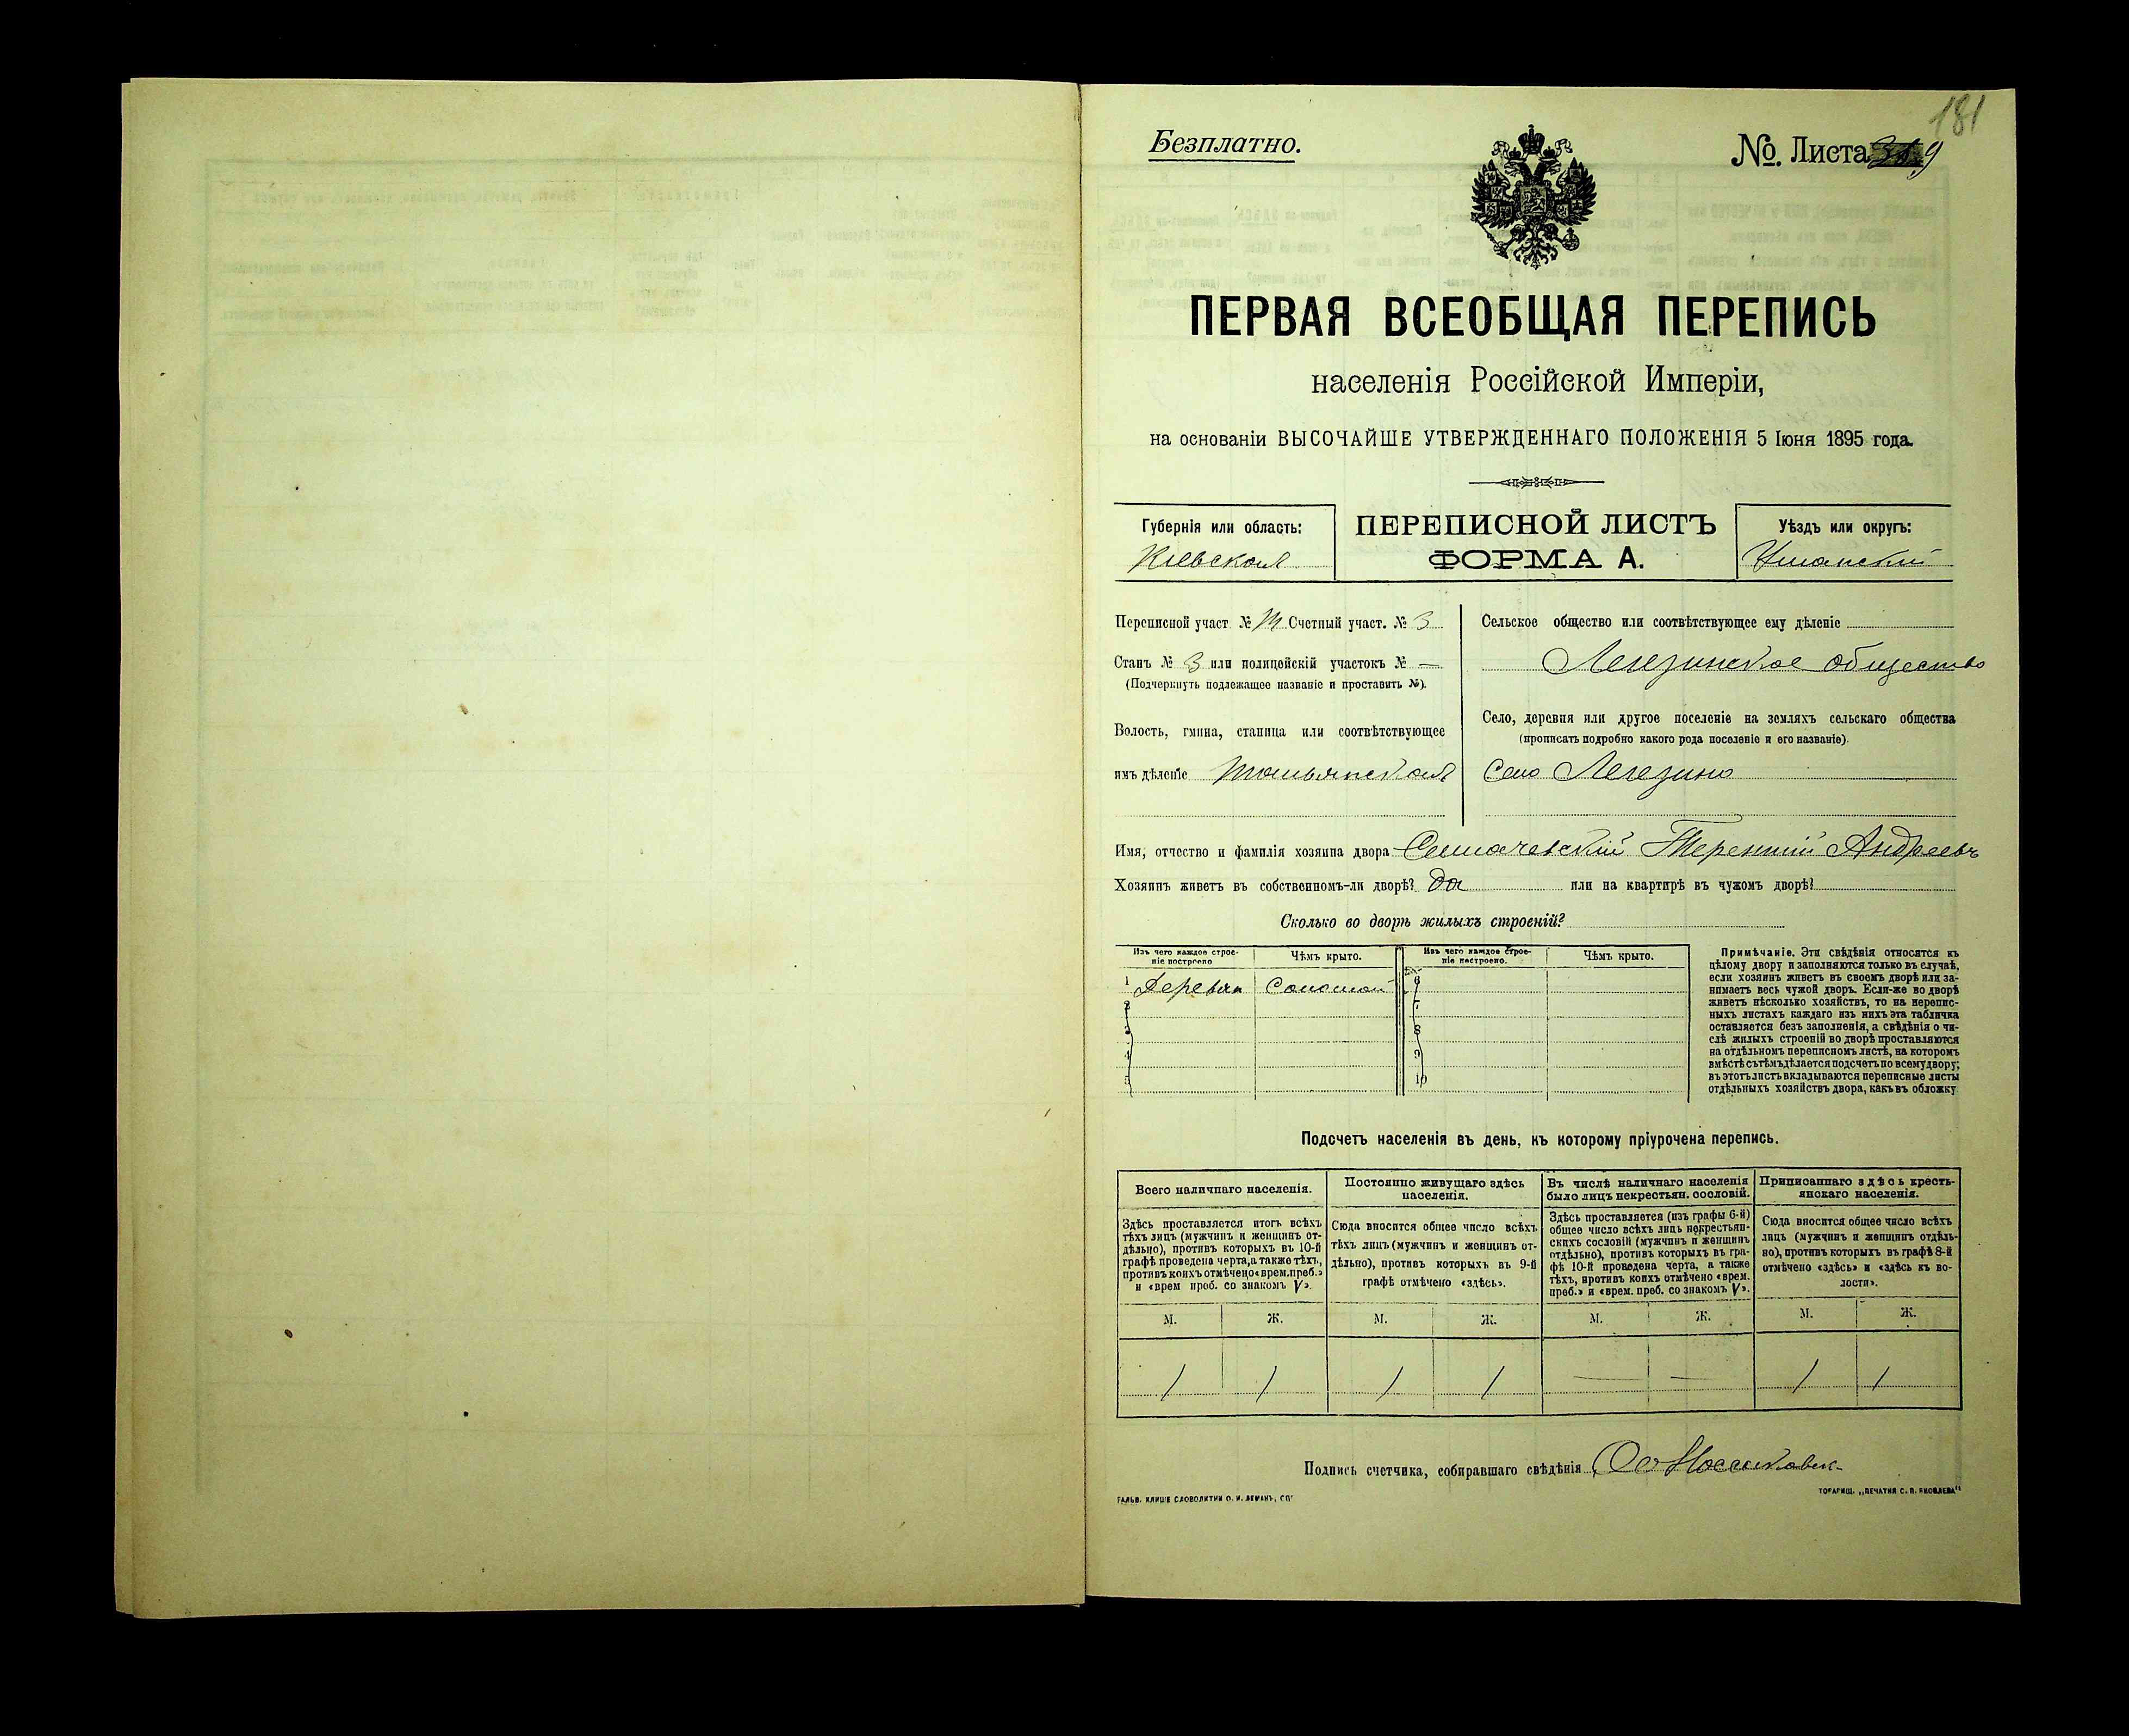 181
Безплатно.
№. Листа 9
ПЕРВАЯ ВСЕОБЩАЯ ПЕРЕПИСЬ
населенія Россійской Имперіи,
на основаніи ВЫСОЧАЙШЕ УТВЕРЖДЕННАГО ПОЛОЖЕНІЯ 5 Іюня 1895 года.
Губернія или область:
Кіевская
ПЕРЕПИСНОЙ ЛИСТЪ
ФОРМА А.
Уѣздъ или округъ:
Уманскій
Переписной участ. № Счетный участ. № 3
Станъ № 3 или полицейскій участокъ № —
(Подчеркнуть подлежащее названіе и проставить №).
Волость, гмина, станица или соотвѣтствующее
имъ дѣленіе Тальянская
Сельское общество или соотвѣтствующее ему дѣленіе
Легезинское общество
Село, деревня или другое поселеніе на земляхъ сельскаго общества
(прописать подробно какого рода поселеніе и его названіе).
Село Легезино
Имя, отчество и фамилія хозяина двора Терентій Андреевъ
Хозяинъ живетъ въ собственномъ-ли дворѣ? Да или на квартирѣ въ чужомъ дворѣ?
Сколько во дворѣ жилыхъ строеній?
Изъ чего каждое строе-
ніе построено
Чѣмъ крыто.
Изъ чего каждое строе-
ніе построено.
Чѣмъ крыто.
1 Деревян Соломой 6
2 7
3 8
4 9
5 10
Примѣчаніе. Эти свѣдѣнія относятся къ
цѣлому двору и заполняются только въ случаѣ,
если хозяинъ живетъ въ своемъ дворѣ или за-
нимаетъ весь чужой дворъ. Если-же во дворѣ
живетъ нѣсколько хозяйствъ, то на перепис-
ныхъ листахъ каждаго изъ нихъ эта табличка
оставляется безъ заполненія, а свѣдѣнія о чи-
слѣ жилыхъ строеній во дворѣ проставляются
на отдѣльномъ переписномъ листѣ, на которомъ
вмѣстѣ съ тѣмъ дѣлается подсчетъ по всему двору;
въ этотъ листъ вкладываются переписные листы
отдѣльныхъ хозяйствъ двора, какъ въ обложку
Подсчетъ населенія въ день, къ которому пріурочена перепись.
Всего наличнаго населенія.
Постоянно живущаго здѣсь
населенія.
Въ числѣ наличнаго населенія
было лицъ некрестьян. сословій.
Приписаннаго здѣсь кресть-
янскаго населенія.
Здѣсь проставляется итогъ всѣхъ
тѣхъ лицъ (мужчинъ и женщинъ от-
дѣльно), противъ которыхъ въ 10-й
графѣ проведена черта, а также тѣхъ,
противъ коихъ отмѣчено «врем. преб.»
и «врем преб. со знакомъ V».
Сюда вносится общее число всѣхъ
тѣхъ лицъ (мужчинъ и женщинъ от-
дѣльно), противъ которыхъ въ 9-й
графѣ отмѣчено «здѣсь».
Здѣсь проставляется (изъ графы 6-й)
общее число всѣхъ лицъ некрестьян-
скихъ сословій (мужчинъ и женщинъ
отдѣльно), противъ которыхъ въ гра-
фѣ 10-й проведена черта, а также
тѣхъ, противъ коихъ отмѣчено «врем.
преб.» и «врем. преб. со знакомъ V».
Сюда вносится общее число всѣхъ
лицъ (мужчинъ и женщинъ отдѣль-
но), противъ которыхъ въ графѣ 8-й
отмѣчено «здѣсь» и «здѣсь къ во-
лости».
М. Ж. М. Ж. М. Ж. М. Ж.
1 1 1 1 — — 1 1
Подпись счетчика, собиравшаго свѣдѣнія
ГАЛЬВ. КЛИШЕ СЛОВОЛИТНИ О. И. ЛЕМАНЪ, СПБ
ТОВАРИЩ. „ПЕЧАТНЯ С. П. ЯКОВЛЕВА"